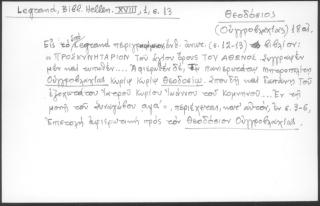 Legrand, Bibl. Hellen. XVIII, 1, σ. 13
Θεοδόσιος
(Οὑγγροβλαχίας) 18 αἰ.
Εἰς τὸ ὑπὸ Legrand περιγραφόμενον ἐνθ. ἀνωτ. (σ. 12-13) βιβλίον:
«ΠΡΟΣΚΥΝΗΤΑΡΙΟΝ τοῦ ἁγίου ὄρους ΤΟΥ ΑΘΩΝΟΣ συγγραφὲν
μὲν καὶ τυπωθέν... Ἀφιερωθὲν δὲ, τῷ πανιερωτάτῳ Μητροπολίτῃ
Οὑγγροβλαχίας κυρίῳ κυρίῳ Θεοδοσίῳ. Σπουδῇ καὶ δαπάνῃ τοῦ
ἐξοχωτάτου Ἰατροῦ κυρίου Ἰωάννου τοῦ Κομνηνοῦ... Ἐν τῇ
μονῇ τοῦ Συναγώβου αψα΄», περιέχεται, κατ' αὐτόν, ἐν σ. 3-6,
Ἐπιστολὴ ἀφιερωτικὴ πρὸς τὸν Θεοδόσιον Οὑγγροβλαχίας.